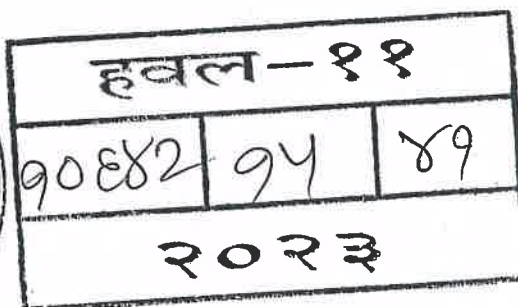 हवल-११
१०६४२ १५ ४१
२०२३